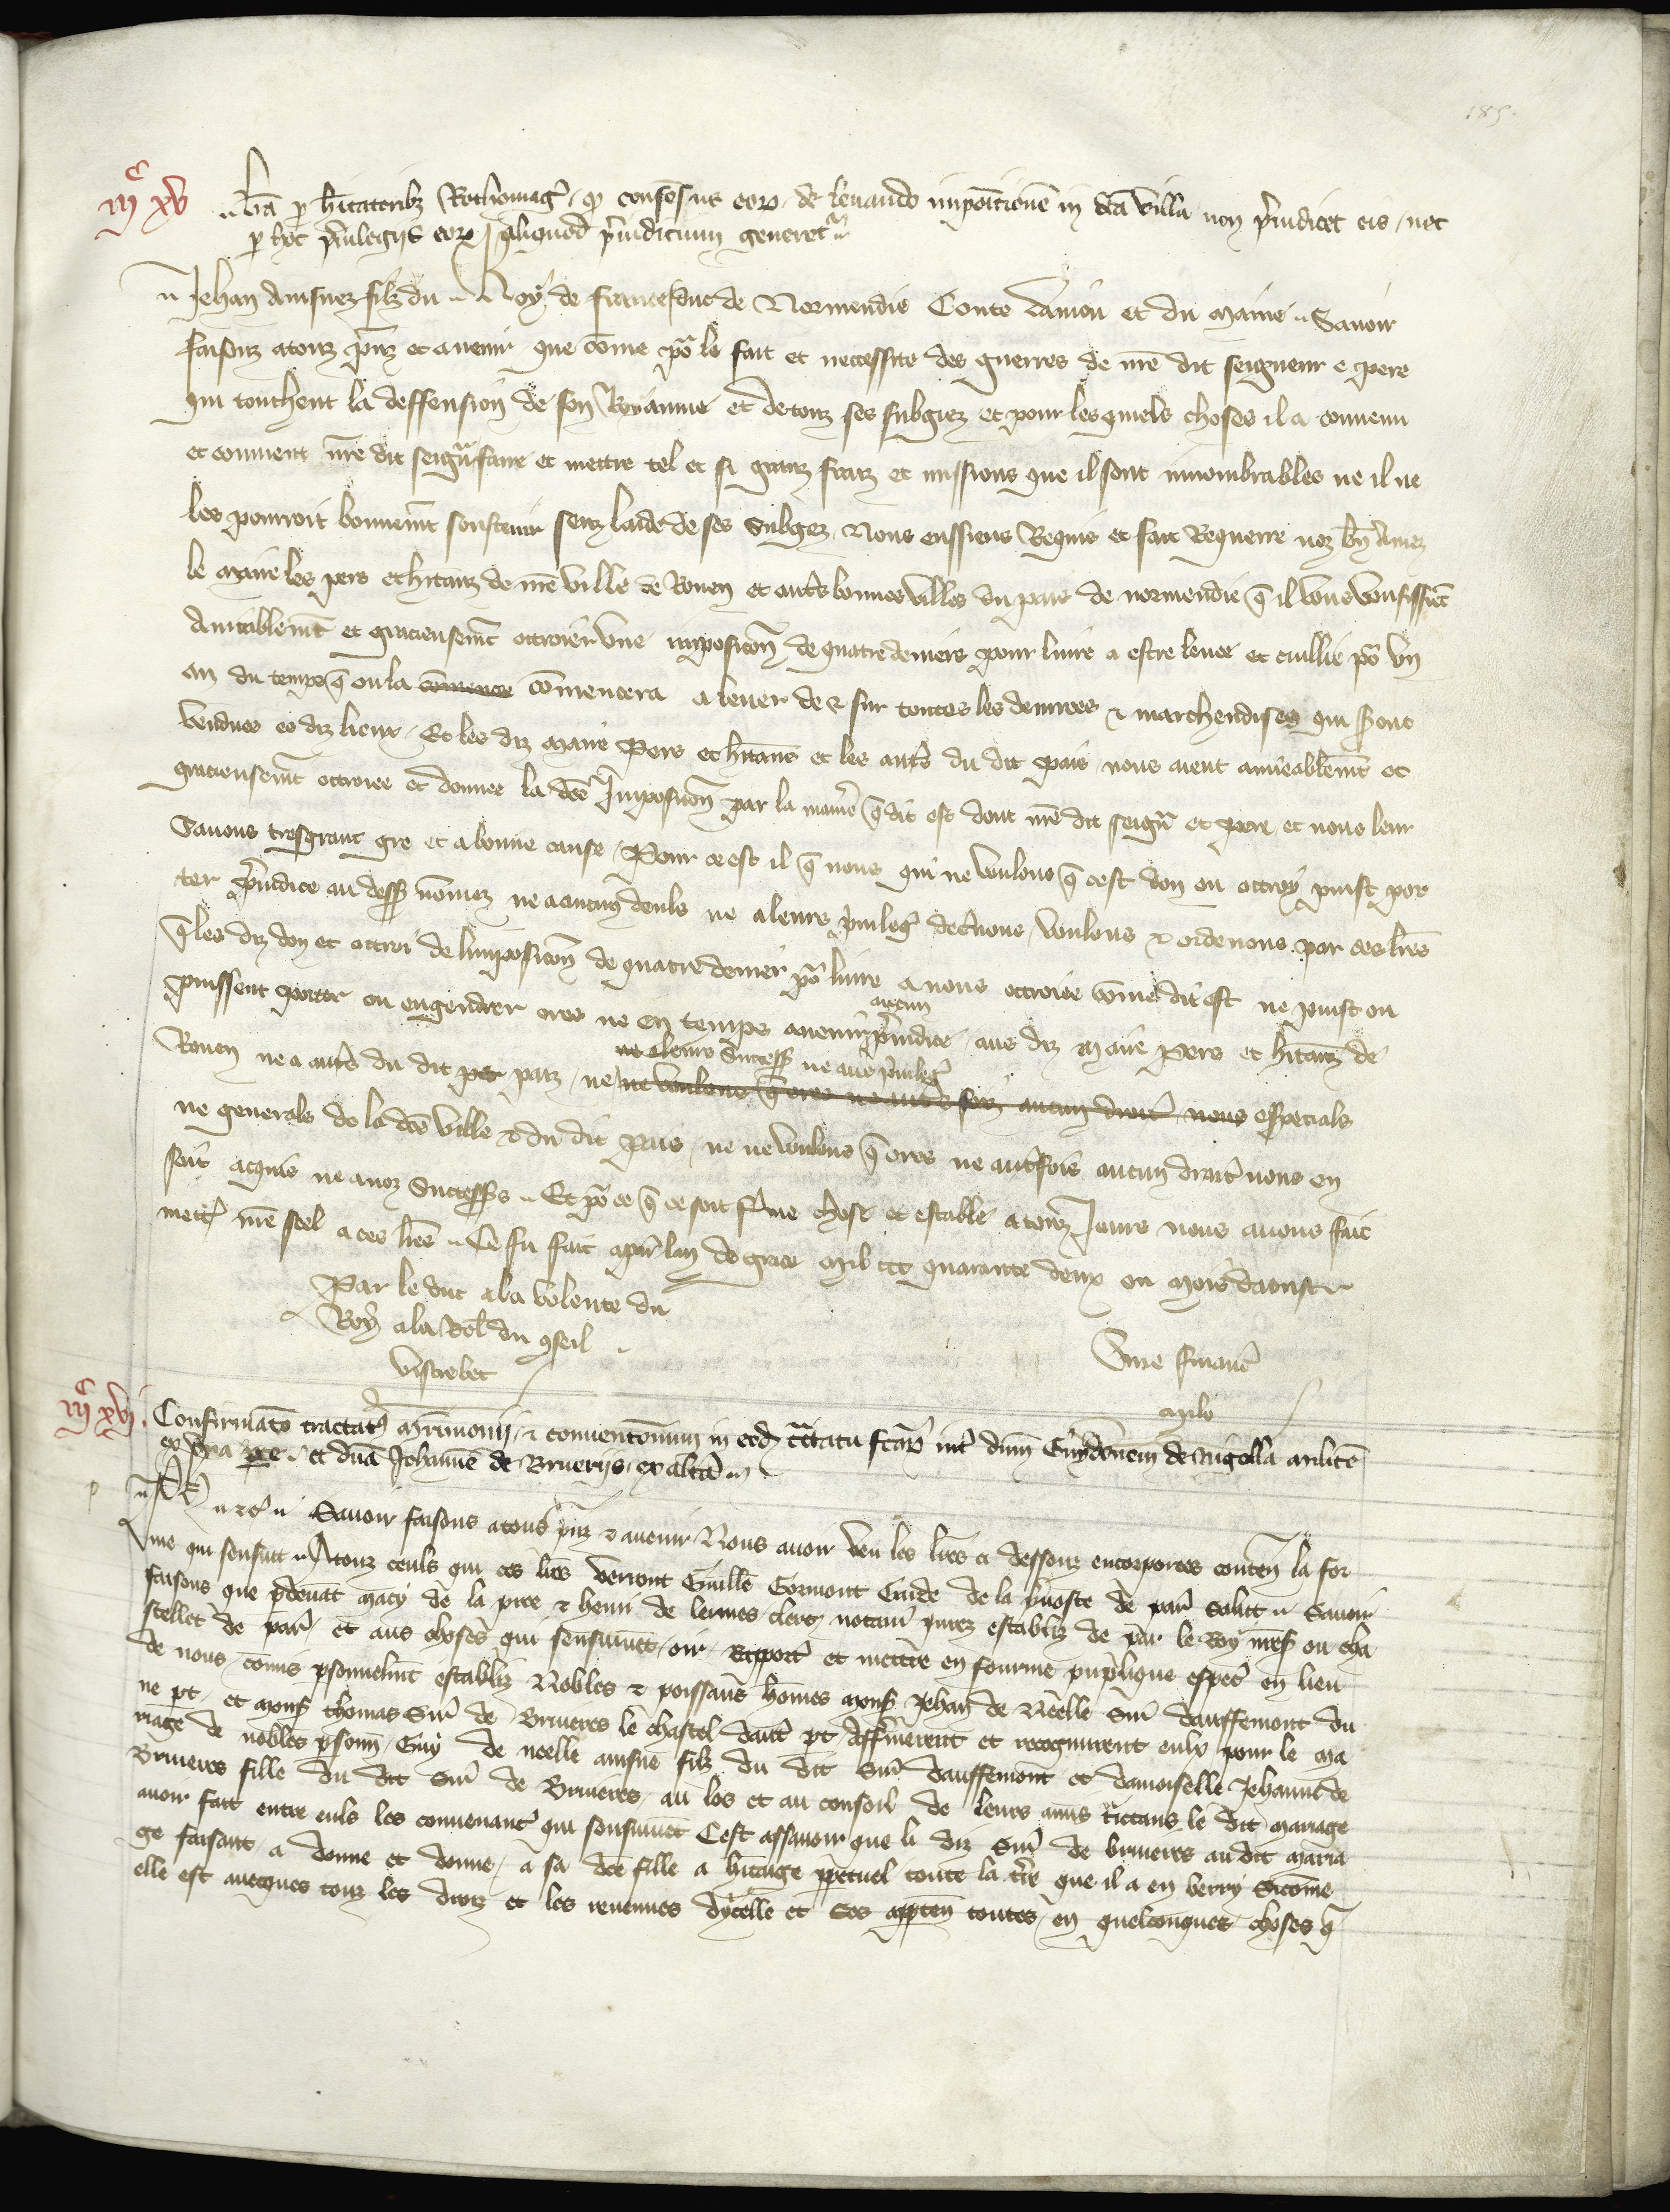 185.
iiiᶜ xv
Lr̄a p̱ h̄itatoribz Rothomag̓ . qd̕ consens̄us eoꝝ . de levando impo̅itione̅ in d̄ca villa non p̄iudicet eis / nec
p̱ hoc p̄uilegiis eoꝝ aliquod p̄iudicium generet̃
Jehan ainsnez filz du Roy de france duc de Normendie Conte daniou et du maine Savoir
faisons a touz p̄nz et avenir que co̅me po̾ le fait et necessite des guerres de nr̄e dit seigneur e pere
qui touchent la deffension de son Royaume et de touz ses subgiez et pour les quels choses il a convenu
et convient nr̄e dit seign̄ faire et mettre tel et si granz fraiz et missions que il sont innombrables ne il ne
les pourroit bonneme̅t soustenir senz laide de ses subgez Nous eussiens Requis et fait Requerre noz bn̄ amez
le maire les pers et h̄itanz de nr̄e ville de Rouen et aut̄s bonnes villes du pais de normendie q̄ il vous vousissient
Amiablem̄t et gracieusem̄t ottroier une impositio̅n de quatre deniers pour livre a estre levee et cuillie po̾ un
an du temps q̄ on la co̅mence co̅mencera a lever de & sur toutes les denrees & marchendises qui s̄ont
vendues es diz lieux . Et les diz maire Pers et h̄itanz et les aut̄s du dit pais nous aient amieablem̄t et
gracieusem̄t ottroiee et donnee la dc̄e Imposicio̅n par la manie̅r q̄ dit est dont nr̄e dit seign̄ et pere et nous leur
Savons tresgrant gre et a bonne cause . Pour ce est il q̄ nous qui ne voulons q̄ cest don ou ottroy puist por
ter p̄iudice au dess̄ no̅mez ne a aucun deuls ne a leurs p̄uileg̓ declairons voulons & ordenons par ces lr̄es
q̄ les diz don et ottroi de limpositio̅n de quatre denier po̾ livre a nous ottroiee co̅me dit est ne puist ou
puissent porter ou engendrer ores ne en temps avenir aucun p̄iudice aus diz maire Pers et h̄itanz de
Rouen ne a aut̄s du dit per paiz / ne ne a leurs success̄ ne aus p̄uileg̓ ne voulons q̄ ores ne aut̄efois aucun droit nous especials
ne generals de la dc̄e ville & du dit pais . ne ne voulons q̄ ores ne aut̄efois aucun droit nous en
soit acquis ne a noz Success̄s . Et po̾ ce q̄ ce soit ferme chose et estable a touz Jours nous avons fait
mett̓ nr̄e seel a ces lr̄es . Ce fu fait a par̄ lan de grace mil ccc quarante deux ou mois daoust
Par le duc a la volente du
Roy a la Rel̄ du ꝯseil
Viscrebec
Sine financ̄
mile
iiiᶜ xvi .
Confirmatio tractatꝰ m̄rimonii / & conventionum in eod̄ tr̄ctatu fc̄aꝝ int̓ dn̄m Guydonem de Nigella milite̅
ex una p̱te . et dn̄a Joh̄annem de Brueriis / ex alt̓a
Ph̄ &c̓ Savoir faisons a tous p̄nz & avenir Nous avoir veu les lr̄es ci dessouz encorporees conten̄ la for
me qui sensuit Atouz ceuls qui ces lr̄es verront Guill̄e Gormont Garde de la p̄voste de par̄ Salut Savoir
faisons que p̄ devant macy de la pree & henri de lermes clers notair̓ jurez establiz de par le Roy nr̄es̄ ou cha
stellet de par̄ et aus choses qui sensuivent oir . Rapport̓ et mettre en fourme publique espec̄ en lieu
de nous co̅mis p̱sonnelm̄t establiz Nobles & poissans ho̅mes mons̄ Jehan de Neelle Sire̅ dauffemont du
ne pt̄ . et mons̄ thomas Sire̅ de Brueres le chastel daut̓ pt̄ Afferm̄erent et recognurent euls pour le ma
riage de nobles p̱sonn̄ Guy de neelle ainsne filz du dit Sire̅ dauffemont et damoiselle Jehanne de
Brueres fille du dit Sire̅ de Brueres / au los et au conseil de leurs amis tr̄ctans le dit mariage
avoir fait entre euls les convenanc̓ qui sensuivent Cest assavoir que li diz Sire̅ de brueres au dit maria
ge faisant . a donne et donne / a sa dc̄e fille a h̄itage p̱petuel toute la t̓re que il a en berry Sico̅me
elle est avecques touz les droiz et les revenues dycelle et ses app̱ten̄ toutes en quelconques choses q̄